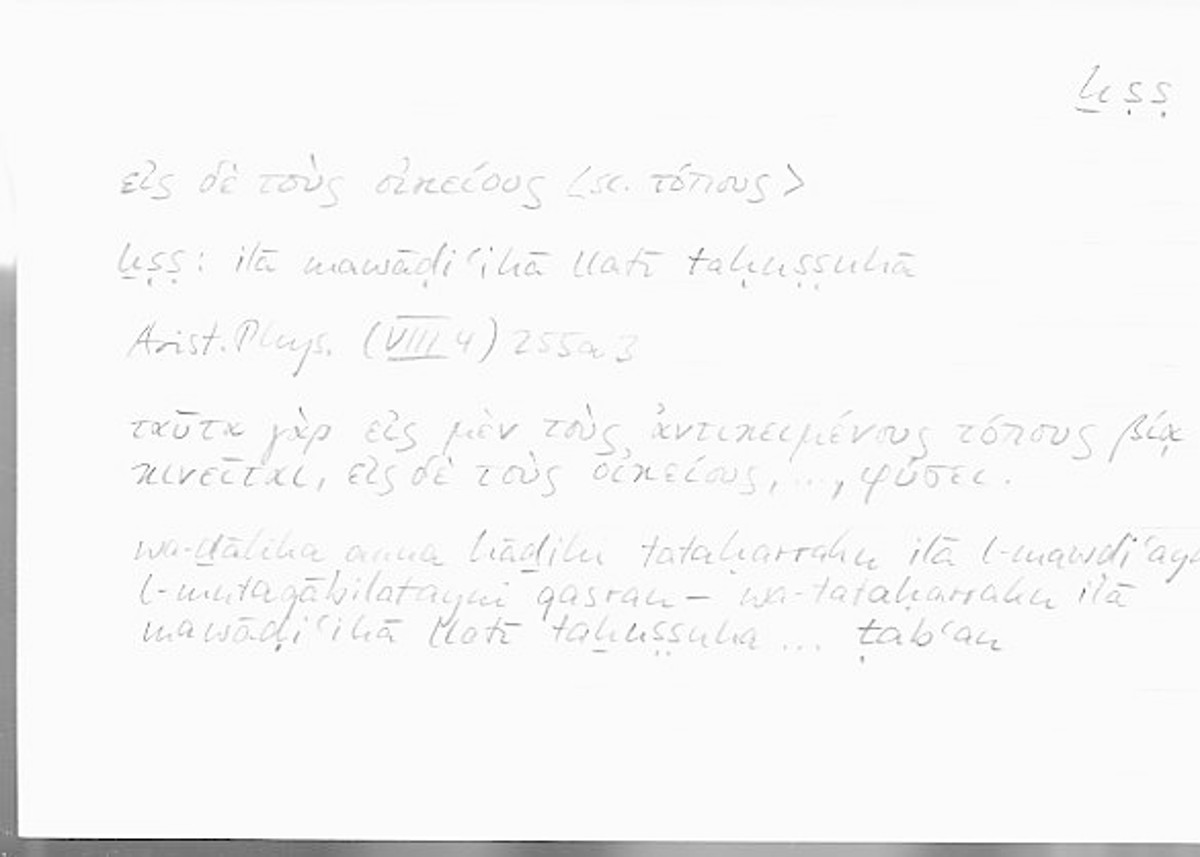 ḫṣṣ
εἰς δὲ τοὺς οἰκείους <sc. τόπους>
ḫṣṣ: ilā mawāḍiʿihā llatī taḫuṣṣuhā
Arist. Phys. (VIII 4) 255a3
ταῦτα γὰρ εἰς μὲν τοὺς ἀντικειμένους τόπους βίᾳ
κινεῖται, εἰς δὲ τοὺς οἰκείους, ..., φύσει.
wa-ḏālika anna hāḏihi tataḥarraku ilā l-mawḍiʿayni
l-mutaqābilatayni qasran – wa-tataḥarraku ilā
mawāḍiʿihā llatī taḫuṣṣuha ... ṭabʿan